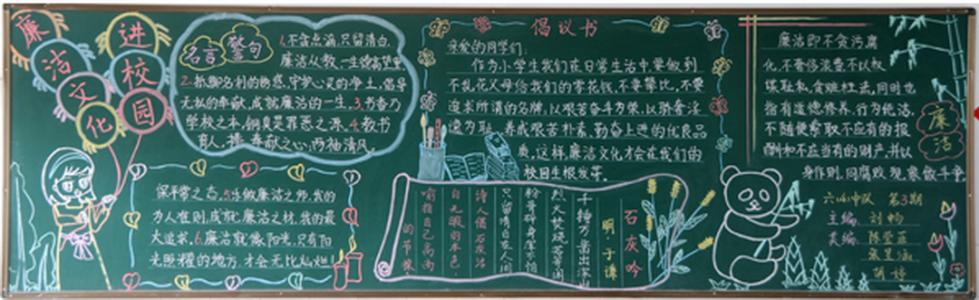 廉洁文化
进校园
名言警句
1.不沾点滴,只留清白,
廉洁从教,一生待高望重
2.抵御名利的诱惑,守护心灵的净土,倡导
无私的奉献,成就廉洁的一生。3.书香乃
学校之本,铜臭是罪恶之源。4.教书
育人,播奉献之心,两袖清风,
保平常之志。5.做廉洁之师,我的
为人准则,成就廉洁之材,我的最
大追求。6.廉洁就像阳光,只有阳
光照耀的地方,才会无比灿烂!
倡议书
亲爱的同学们:
作为小学生我们在日常生活中要做到
不乱花父母给我们的零花钱,不要攀比,不要
追求所谓的名牌,以艰苦奋斗为荣,以骄奢淫
逸为耻,养成艰苦朴素,勤奋上进的优良品
质,这样,廉洁文化才会在我们的
校园生根发芽。
石灰吟
明·于谦
千锤万凿出深山
烈火焚烧若等闲
粉骨碎身浑不怕
只留清白在人间
诗人借石灰洁
自无瑕的本色,
喻指自己高尚
的节操
廉洁即不贪污腐
化,不要铺张浪费不以权
谋私,贪赃枉法,同时也
指有道德修养,行为纯洁,
不随便索取不应有的报
酬和不应当有的财产,并以
身作则,同腐败现象做斗争
廉洁
六(4)中队 第3期
主编:刘畅
美编:陈莹莹
胡婷